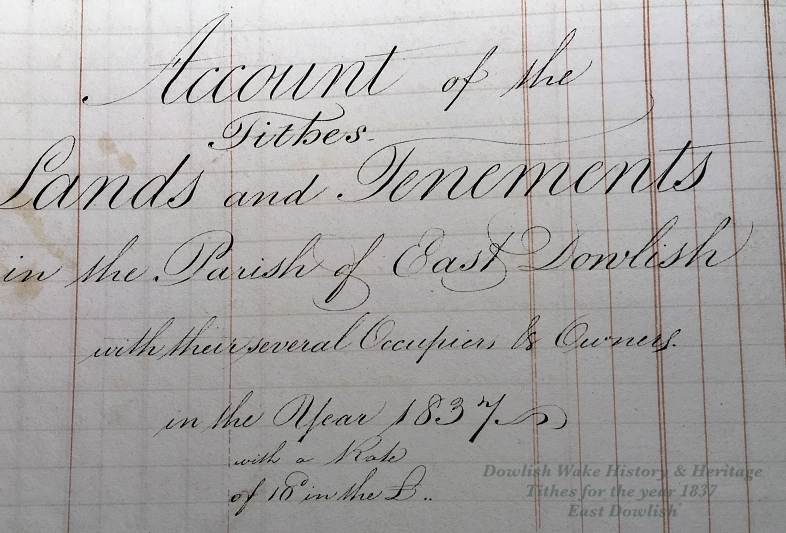 Account of the
Tithes.
Lands and Tenements
in the Parish of East Dowlish
with their several Occupiers & Owners.
in the Year 1837
with a Rate
of in the £..
Dowlish Wake History & Heritage
Tithes for the year 1837
East Dowlish